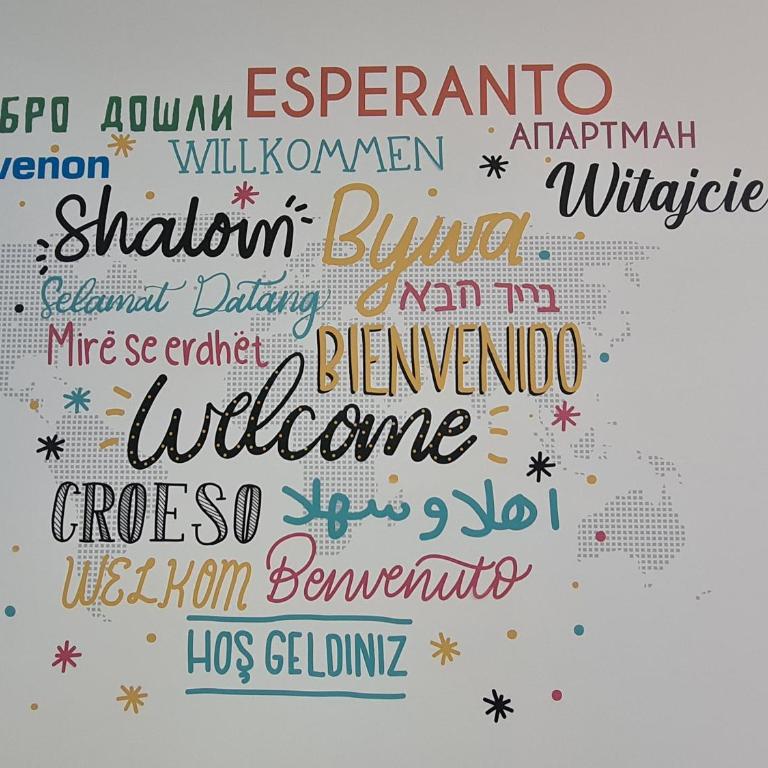 ESPERANTO
БРО ДОШЛИ
АПАРТМАН
WILLKOMMEN
venon
Witajcie
Shalom
Bywa
Selamat Datang
בייך הבא
Mirë se erdhët
BIENVENIDO
Welcome
CROESO
اهلا وسهلا
WELKOM
Benvenuto
HOŞ GELDINIZ